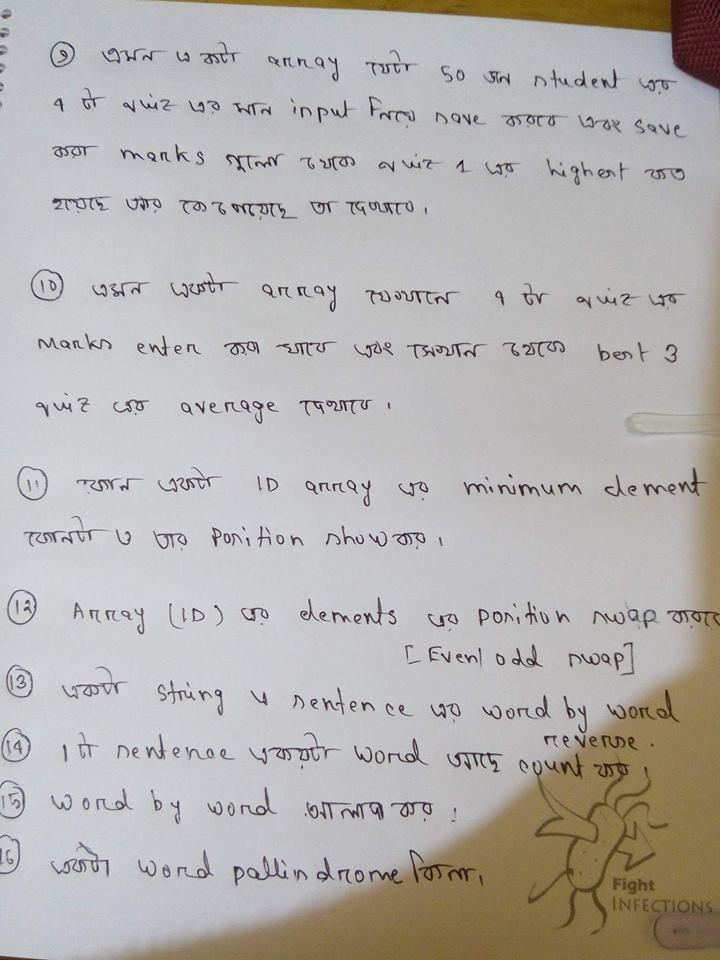 ৯ এমন একটা array যেটা 50 জন student এর
৭ টা quiz এর মান input নিয়ে save করবে এবং save
করা marks গুলো থেকে quiz 1 এর highest কত
হয়েছে আর কে পেয়েছে তা দেখাবে।
10 এমন একটা array যেখানে ৭ টা quiz এর
marks enter করা যাবে এবং সেখান থেকে best 3
quiz এর average দেখাবে।
11 কোন একটা 1D array এর minimum element
কোনটা ও তার position show কর।
12 Array (1D) এর elements এর position swap করবে
[Even/odd swap]
13 একটা string এ sentence এর word by word
reverse.
14 1টা sentence এ কয়টা word আছে count কর।
15 word by word আলাদা কর।
16 একটা word pallindrome কিনা।
Fight
INFECTIONS